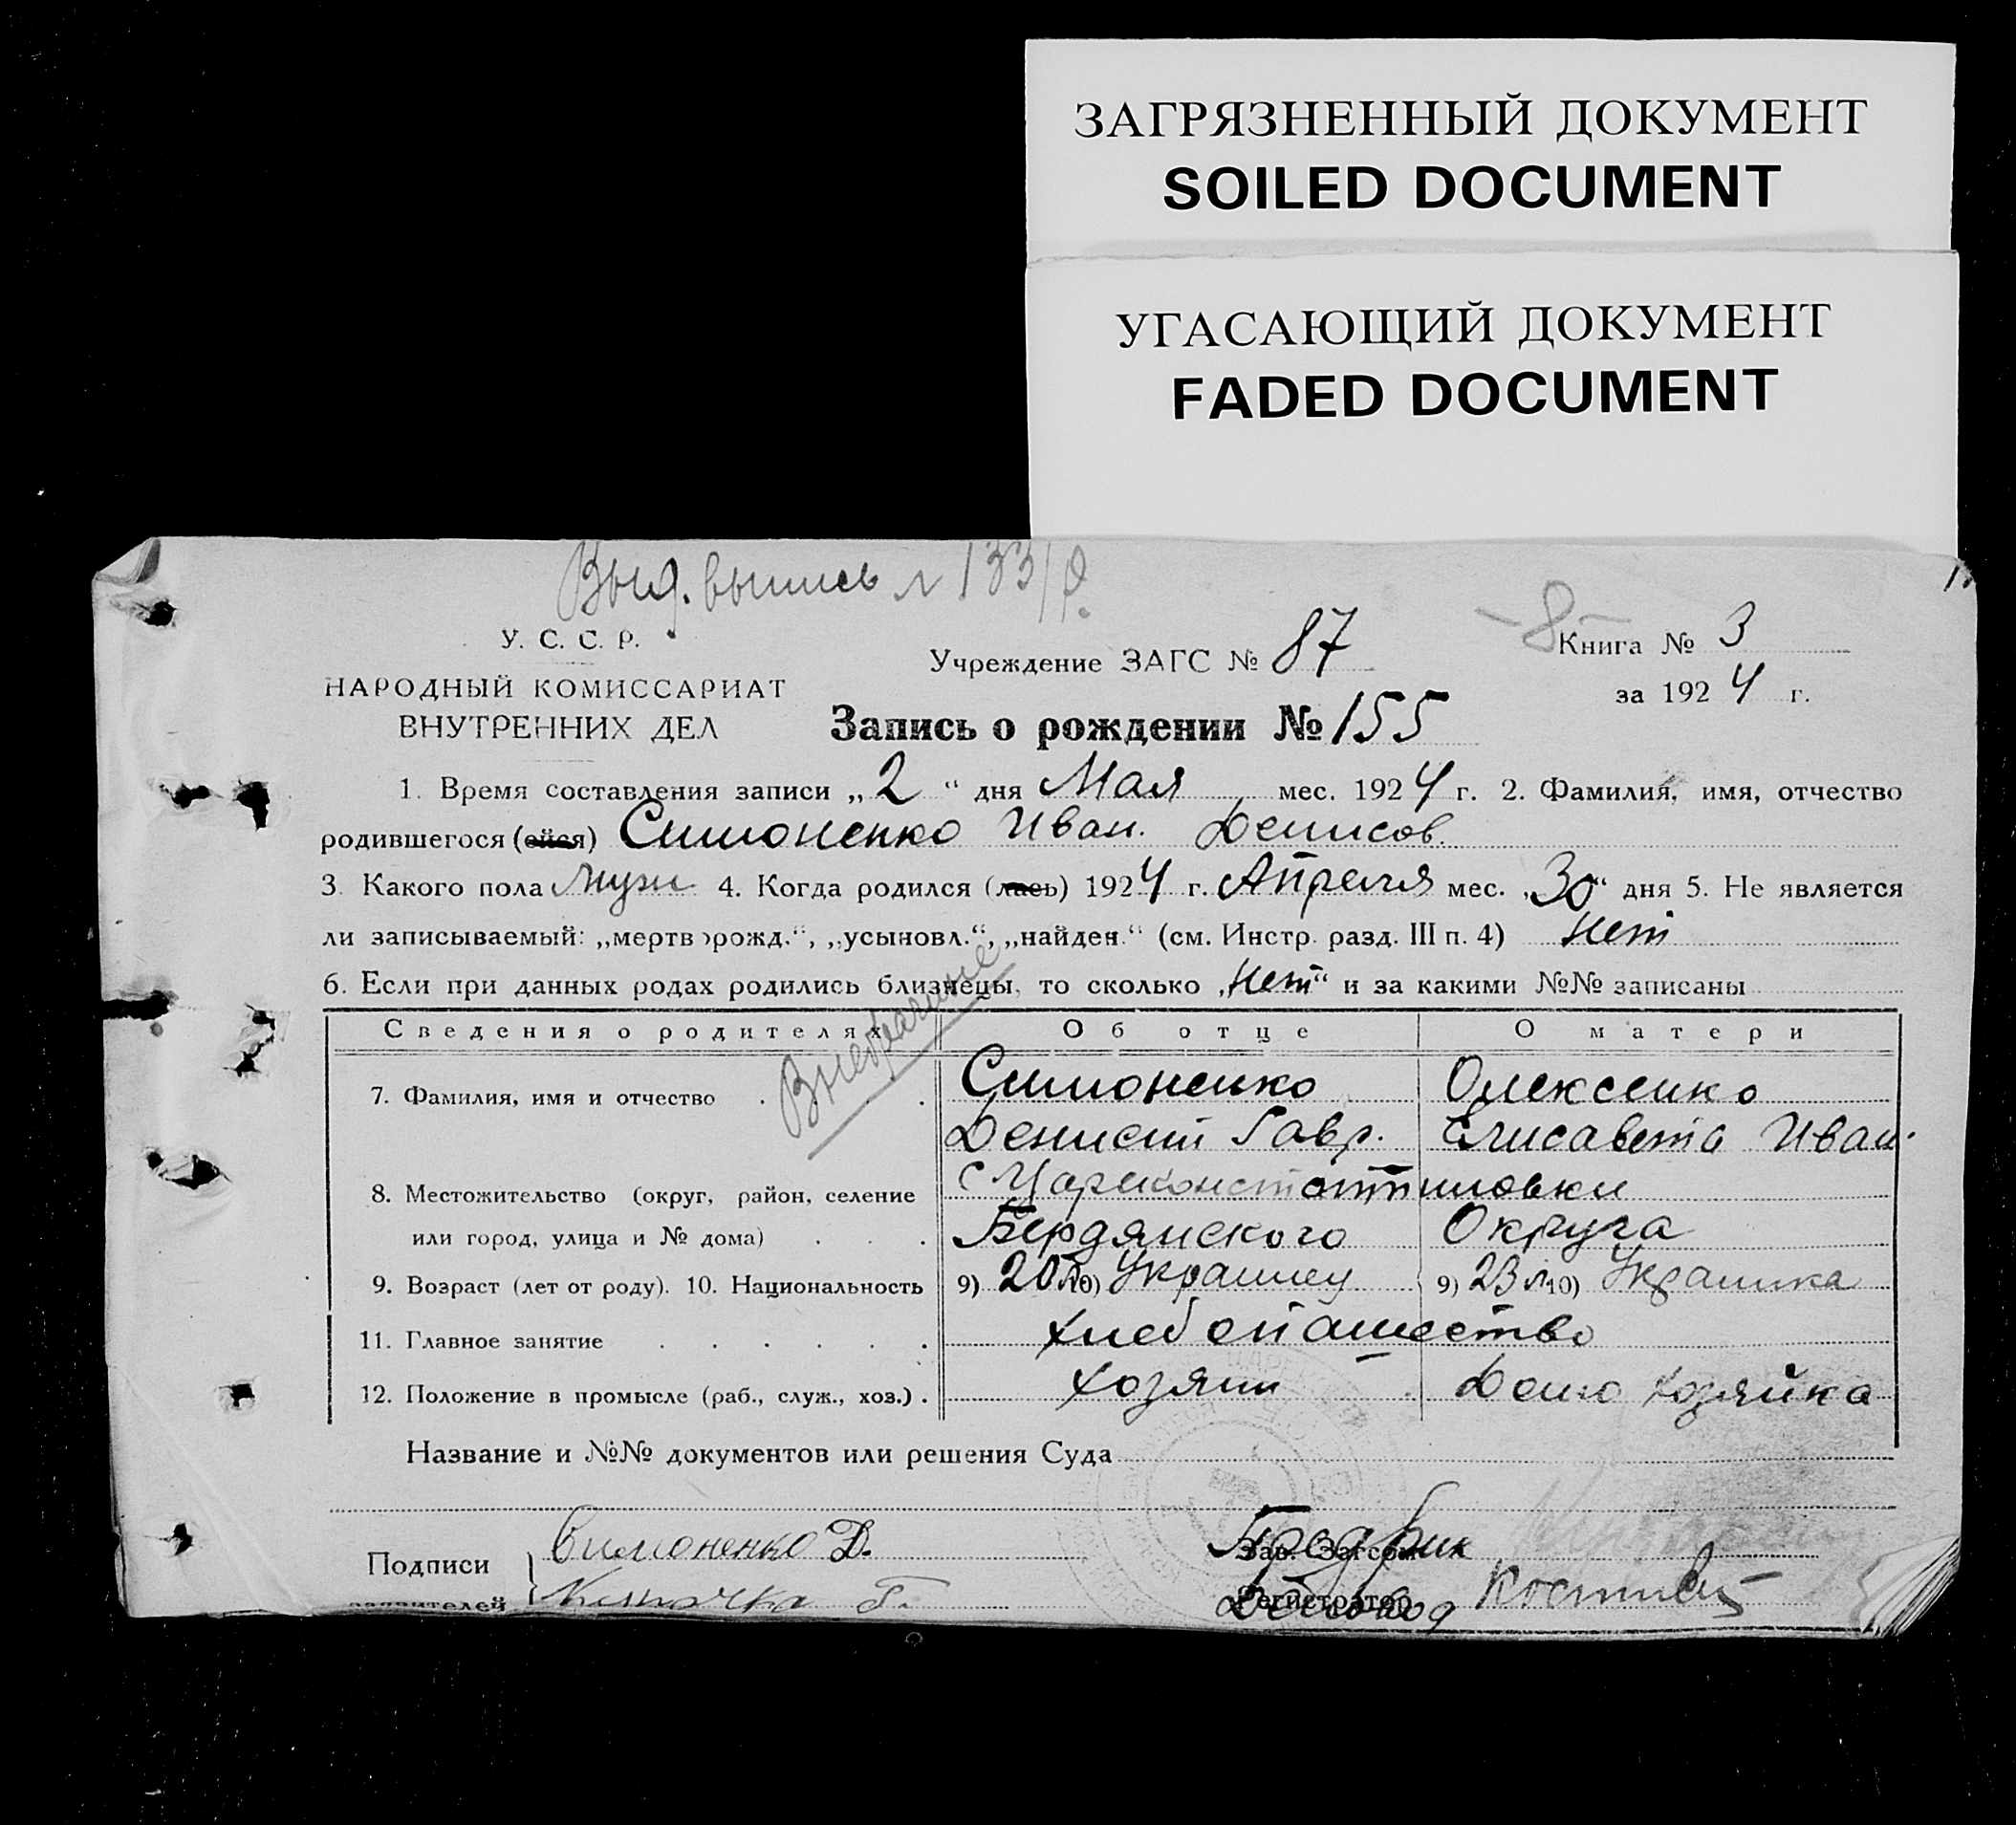 ЗАГРЯЗНЕННЫЙ ДОКУМЕНТ
SOILED DOCUMENT
УГАСАЮЩИЙ ДОКУМЕНТ
FADED DOCUMENT
Выд. выпись №133/р.
У. С. С. Р.
НАРОДНЫЙ КОМИССАРИАТ
ВНУТРЕННИХ ДЕЛ
Учреждение ЗАГС № 87
-8-
Книга № 3
за 1924 г.
Запись о рождении № 155
1. Время составления записи „2“ дня Мая мес. 1924 г. 2. Фамилия, имя, отчество
родившегося (ейся) Симоненко Иван. Денисов.
3. Какого пола Муж 4. Когда родился (лась) 1924 г. Апреля мес. „30“ дня 5. Не является
ли записываемый: „мертворожд.“, „усыновл.“, „найден.“ (см. Инстр. разд. III п. 4) нет
6. Если при данных родах родились близнецы, то сколько „нет“ и за какими №№ записаны
Внебрачные
Сведения о родителях Об отце О матери
7. Фамилия, имя и отчество . . . . Симоненко Олексенко
Денисий Гавр. Елисавета Иван.
8. Местожительство (округ, район, селение с Цареконстантиновки
или город, улица и № дома) . . . Бердянского Округа
9. Возраст (лет от роду). 10. Национальность 9) 20 л 10) Украинец 9) 23 л 10) Украинка
11. Главное занятие . . . . . . хлебопашество
12. Положение в промысле (раб., служ., хоз.) . хозяин Домо хозяйка
Название и №№ документов или решения Суда
Подписи Симоненко Д. Зав. Загсом Предрик
заявителей Регистратор Деловод